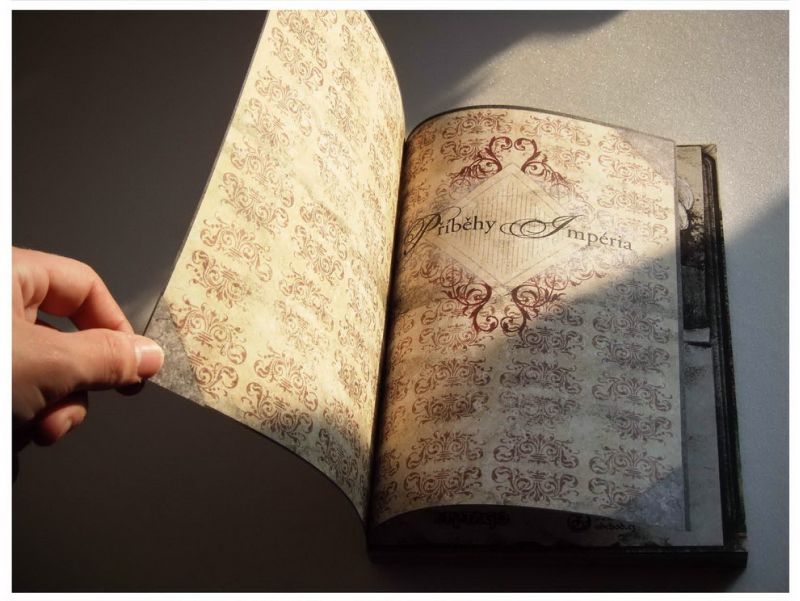 Příběhy Impéria